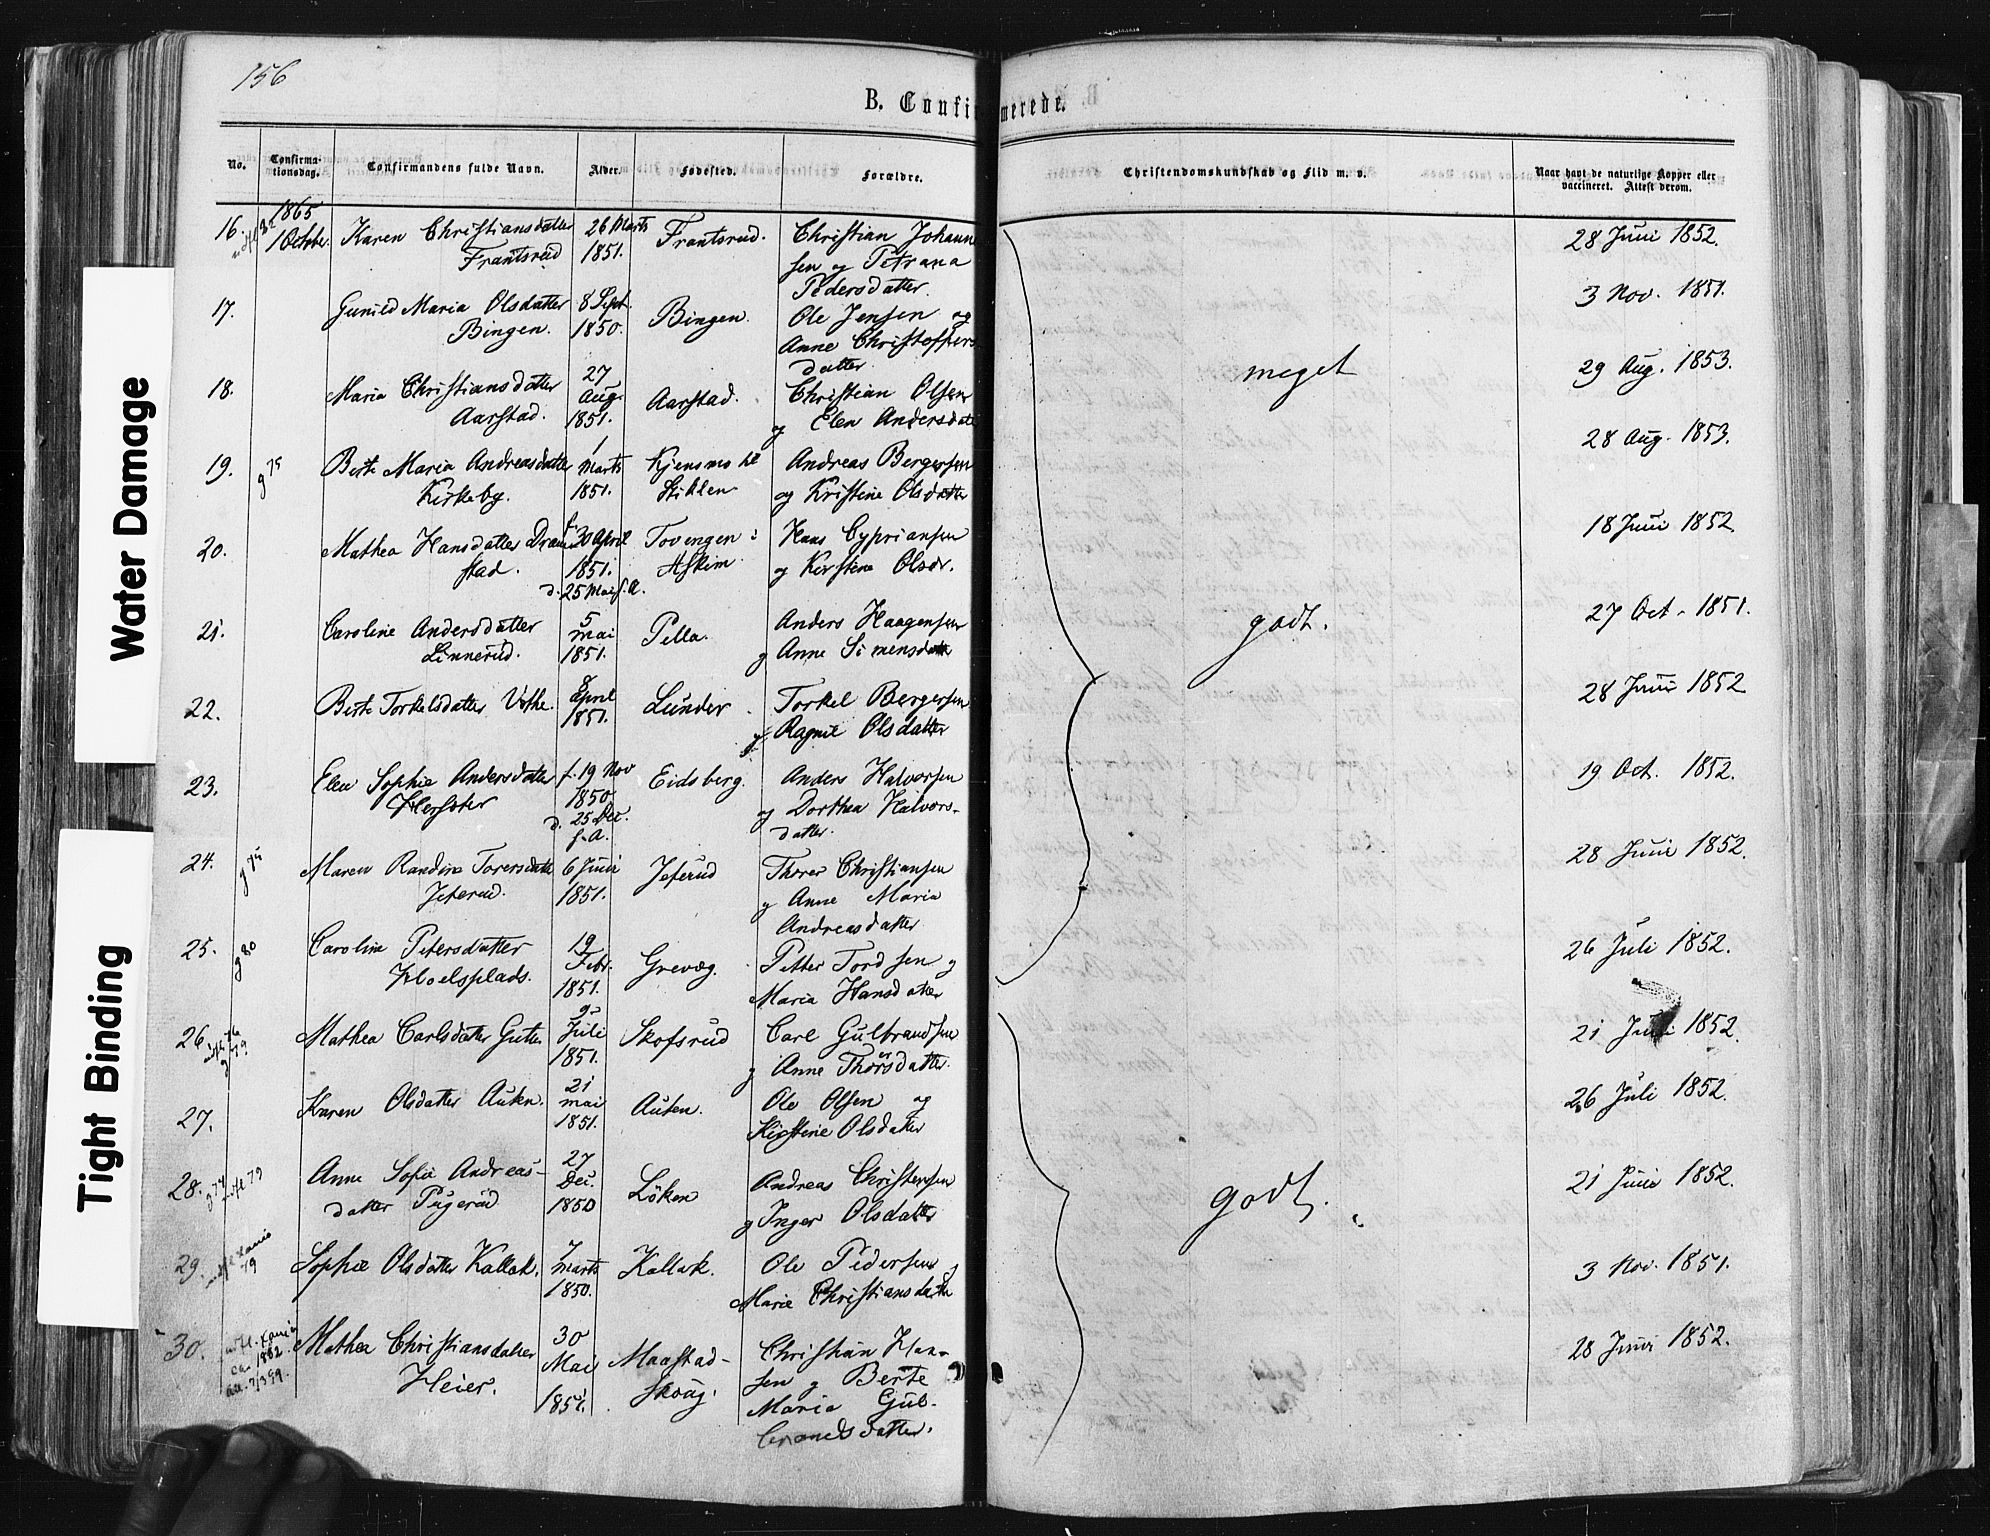 156
B. Confirmerede.
No.
Confirmationsdag.
Confirmandens fulde Navn.
Alder.
Fødested.
Forældre.
Christendomskundskab og Flid m. v.
Naar havt de naturlige Kopper eller vaccineret. Attest derom.
Water Damage
Tight Binding
1865
16. 1 October. Karen Christiansdatter 26 Marts Frantsrud. Christian Johann 28 Juni 1852.
Frantsrud 1851. sen og Petrana
Pedersdatter.
17. Gunild Maria Olsdatter 8 Sept. Bingen. Ole Jensen og 3 Nov. 1851.
Bingen. 1850. Anne Christoffers
datter.
18. Maria Christiansdatter 27 Aarstad. Christian Olsen 29 Aug. 1853.
Aarstad. Aug. og Elen Andersdatter
1851.
meget
19. g 75 Berte Maria Andreasdatter 1 Kjensmo til Andreas Bergersen 28 Aug. 1853.
Kirkeby. Marts Stiklen og Kristine Olsdatter
1851.
20. Mathea Hansdatter f. 30 April Tovengen i Hans Cypriansen 18 Juni 1852
stad. 1851. Askim og Kirstine Olsdr.
d. 25 Mai s. A.
21. Caroline Andersdatter 5 Pella. Anders Haagensen 27 Oct. 1851.
Linnerud. Mai og Anne Simensdatter
1851.
godt.
22. Berte Torkelsdatter 8 Lunder. Torkel Bergersen 28 Juni 1852
April og Ragnil Olsdatter
1851.
23. Elen Sophie Andersdatter f. 19 Nov Eidsberg. Anders Halvorsen 19 Oct. 1852.
1850 og Dorthea Halvors-
d. 25 Dec. datter.
s. A.
24. g 75 Maren Randine Torersdatter 6 Juni Jeterud Thorer Christiansen 28 Juni 1852.
Jeterud. 1851. og Anne Maria
Andreasdatter
25. g 80 Caroline Petersdatter 19 Grevæg. Petter Tordsen og 26 Juli 1852.
Hoelsplads. Febr. Maria Hansdatter
1851.
26 Mathea Carlsdatter 9 Skofsrud Carl Gulbrandsen 21 Juni 1852.
Juli og Anne Thorsdatter.
1851.
27. Karen Olsdatter Auten. 21 Auten. Ole Olsen og 26 Juli 1852.
Mai Kirstine Olsdatter
1851.
28. Anne Sofie Andreas- 27 Löken Andreas Christensen 21 Juni 1852.
datter Pugerud Dec. og Inger Olsdatter
1850
godt.
29. Sophie Olsdatter Kallak. 7 Kallak. Ole Pedersen og 3 Nov. 1851.
79 Marts Marie Christiansdatter
1850.
30. Mathea Christiansdatter 30 Maastad- Christian Han- 28 Juni 1852.
ca. 1882. Heier. Mai skoug. sen og Berte
1851. Maria Gul-
brandsdatter.